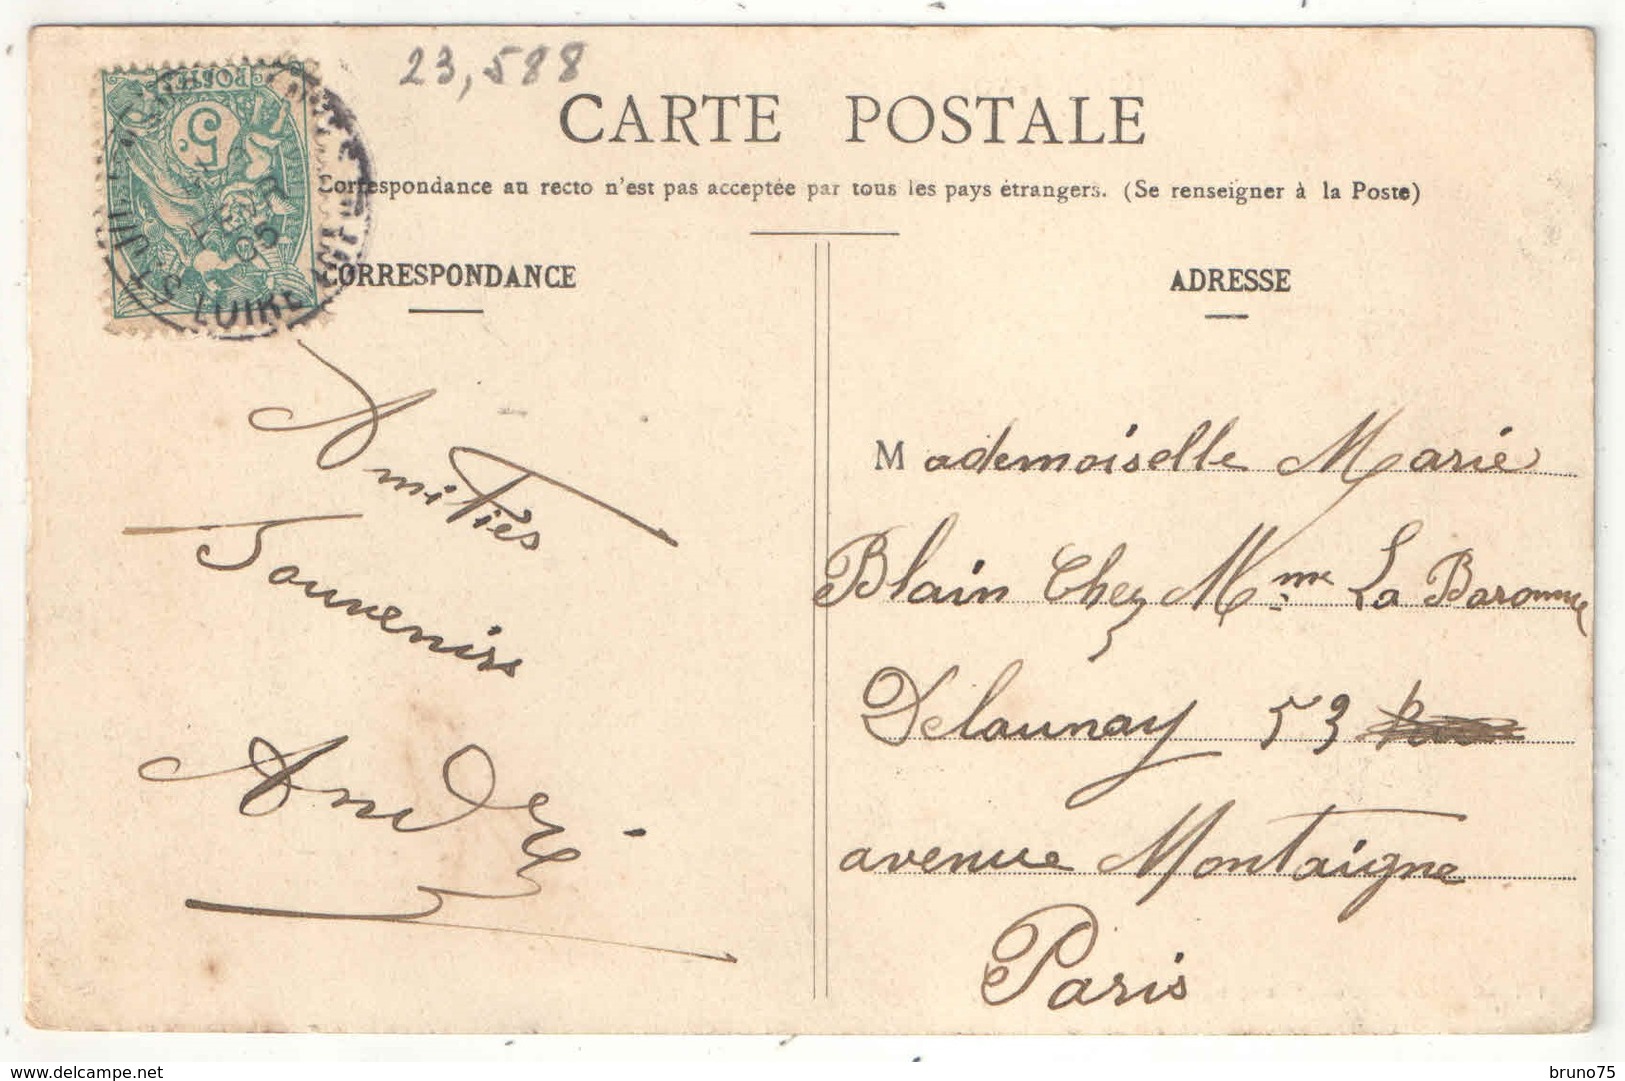 23,588
CARTE POSTALE
Correspondance au recto n'est pas acceptée par tous les pays étrangers. (Se renseigner à la Poste)
CORRESPONDANCE
ADRESSE
POSTES
5
05
LOIRE
Amitiés
Souvenirs
André
Mademoiselle Marie
Blain Chez Mme La Baronne
Delaunay 53
avenue Montaigne
Paris
delcampe.net
bruno75